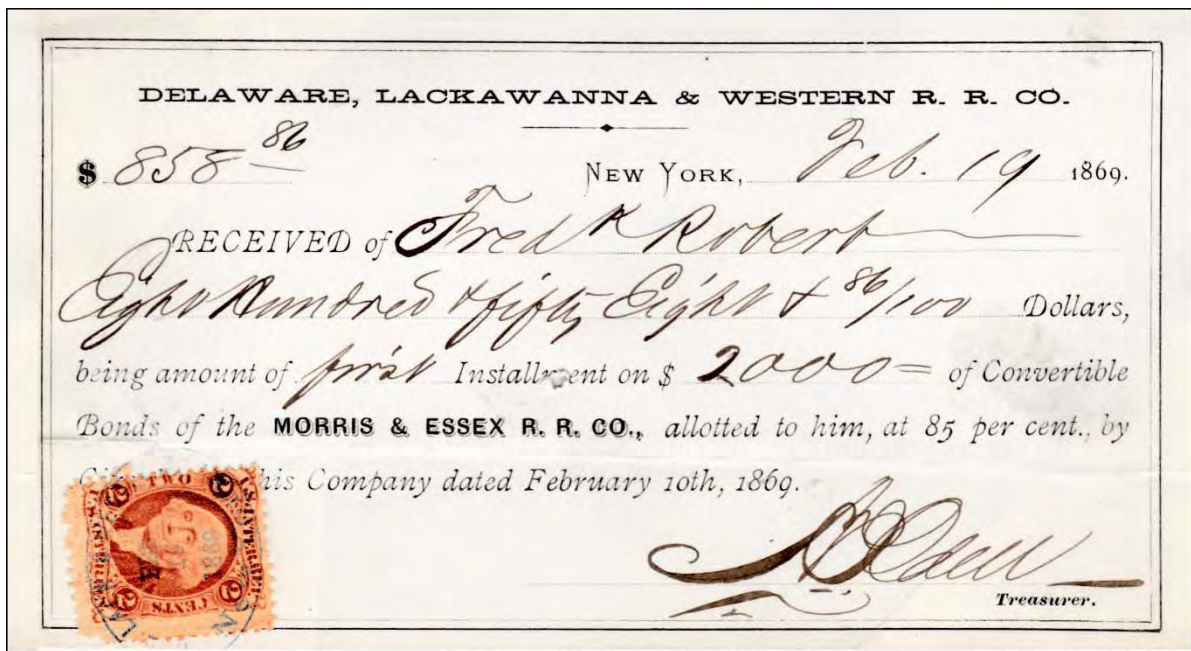 DELAWARE, LACKAWANNA & WESTERN R. R. CO.
$ 858 86
NEW YORK, Feb. 19 1869.
RECEIVED of Fredk Robert
Eight Hundred & fifty Eight & 86/100 Dollars,
being amount of first Installment on $ 2000= of Convertible
Bonds of the MORRIS & ESSEX R. R. CO., allotted to him, at 85 per cent., by
his Company dated February 10th, 1869.
Treasurer.
TWO
2 2
U.S. INTER. REV.
1869
2 2
CENTS